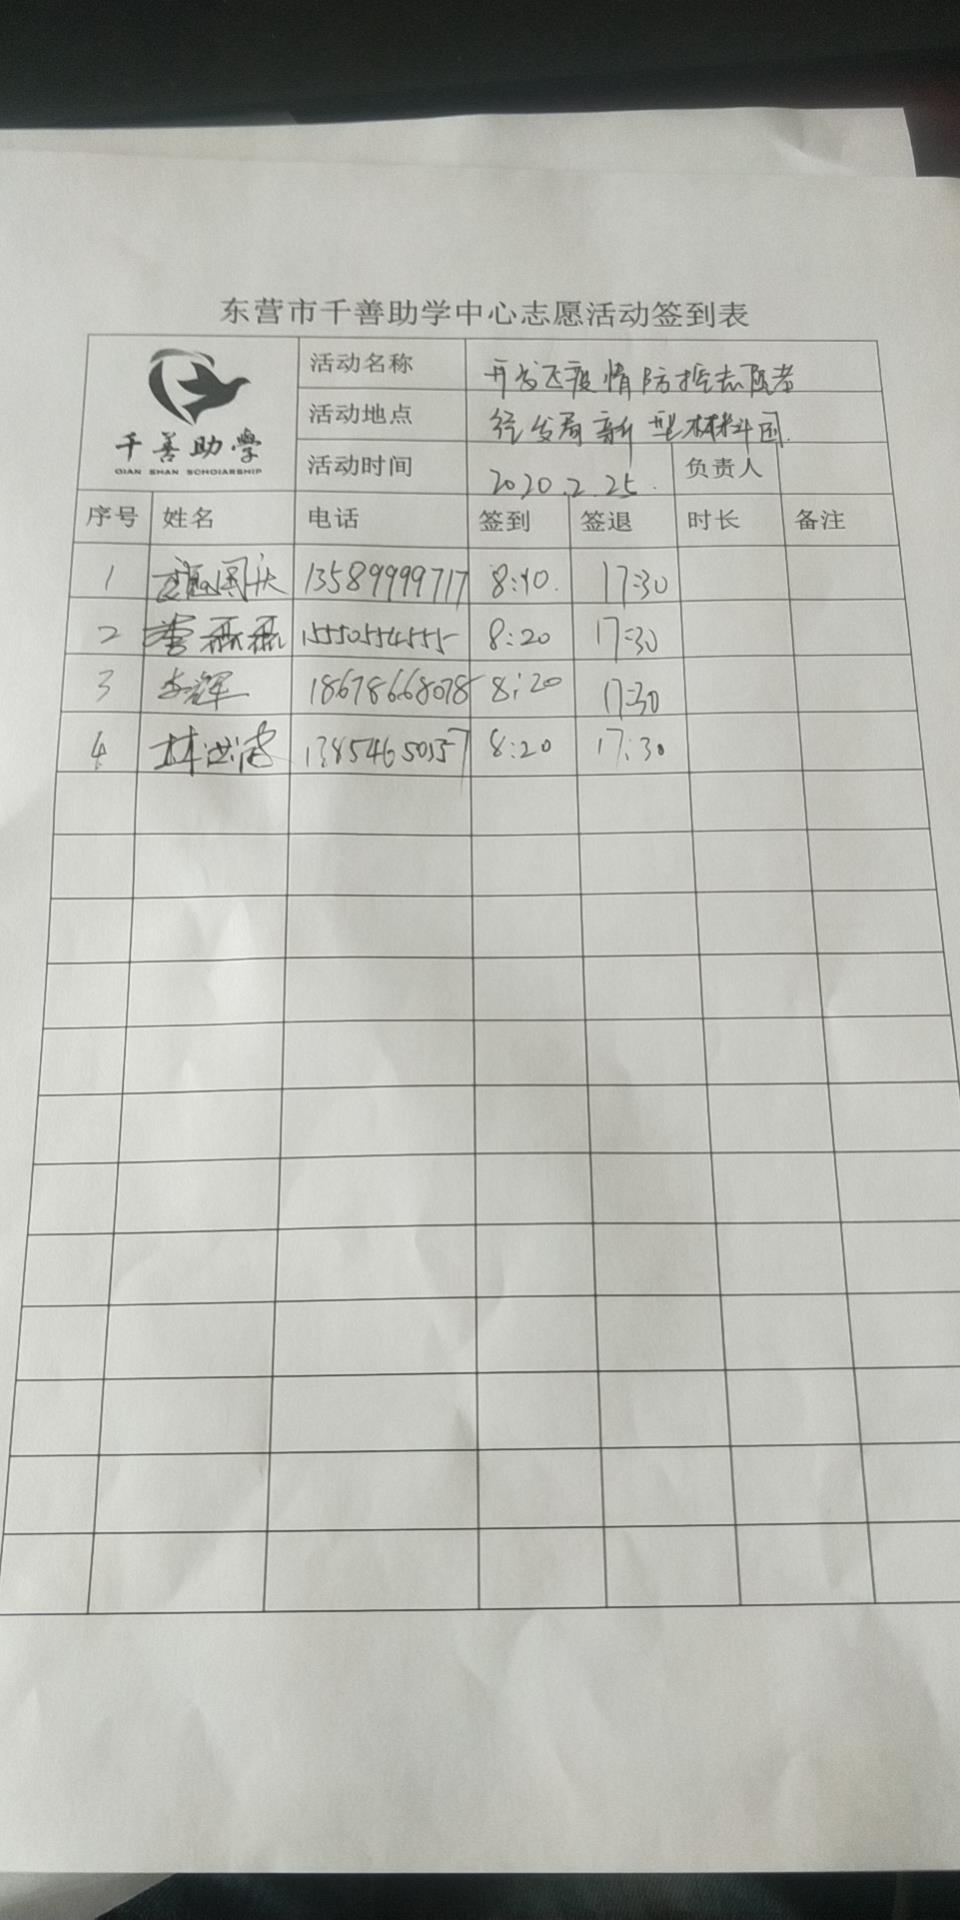 东营市千善助学中心志愿活动签到表
千善助学
QIAN SHAN SCHOLARSHIP
活动名称 开发区疫情防控志愿者
活动地点 经发局新型材料园
活动时间 2020.2.25. 负责人
序号 姓名 电话 签到 签退 时长 备注
1 国庆 13589999717 8:10. 17:30
2 磊磊 15550554555 8:20 17:30
3 李辉 18678668078 8:20 17:30
4 林洪波 13854650357 8:20 17:30